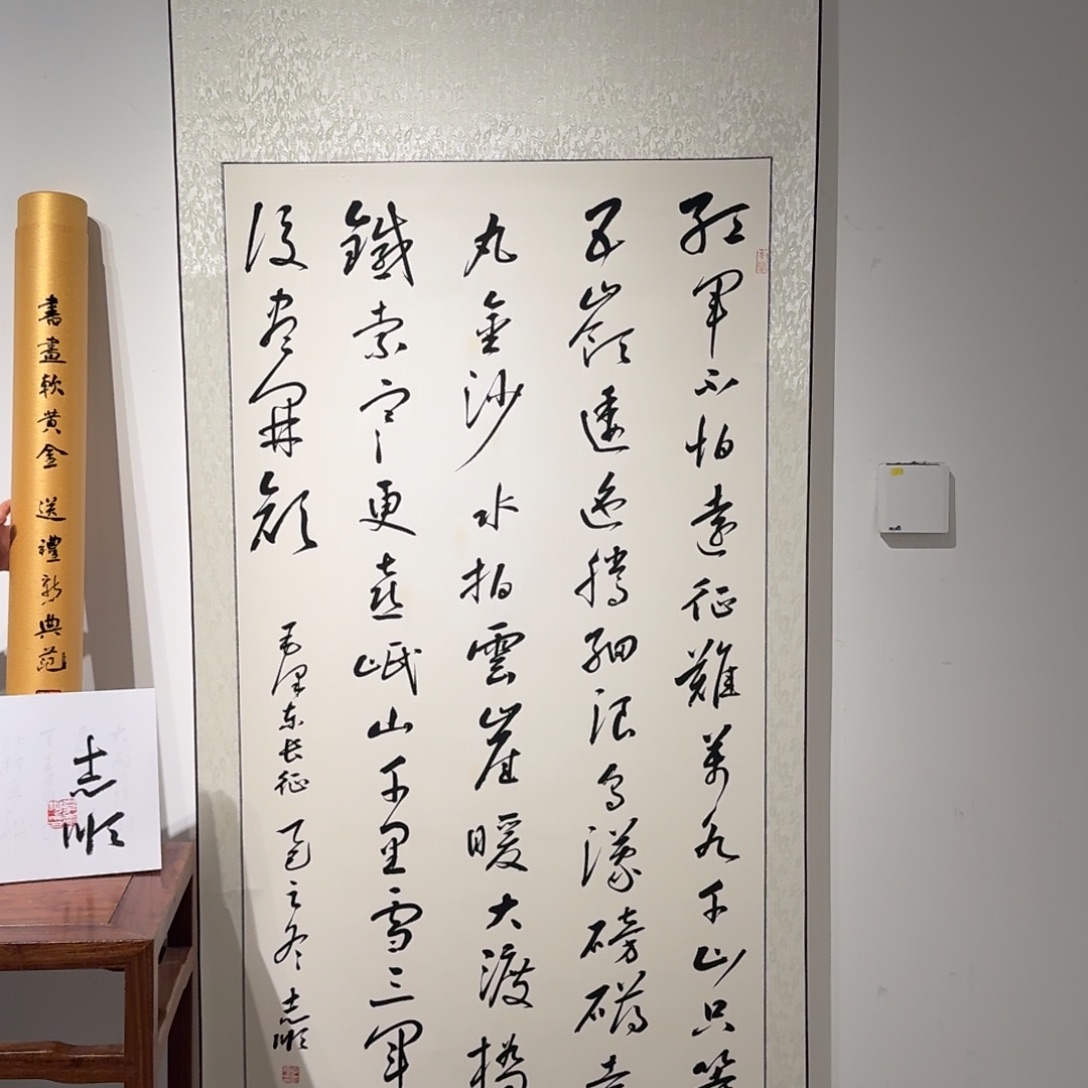 紅軍不怕遠征難萬水千山只等
五嶺逶迤騰細浪烏濛磅礴走
丸金沙水拍雲崖暖大渡橋
鐵索寒更喜岷山千里雪三軍
後盡開顏
毛澤東長征 乙巳之冬 志順
書畫軟黃金 送禮新典范
志順